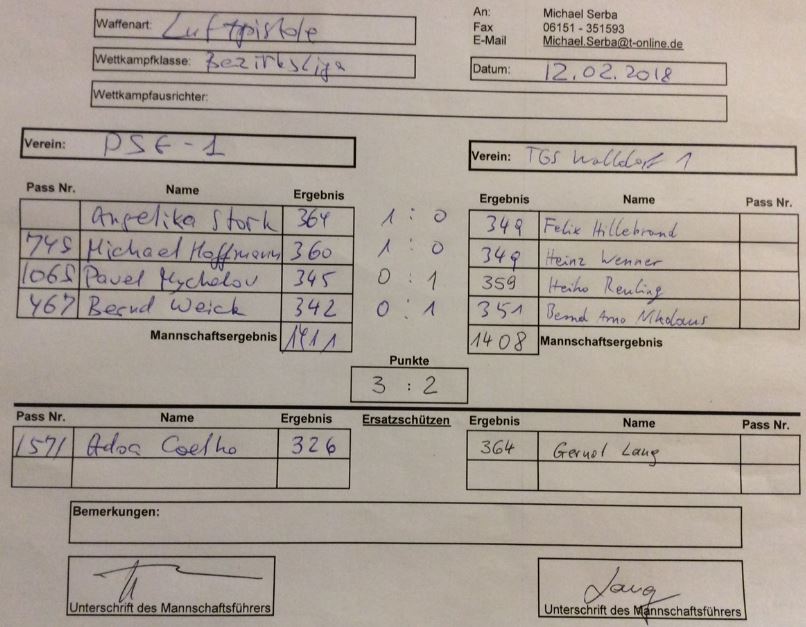 Waffenart: Luftpistole
An: Michael Serba
Fax 06151 - 351593
E-Mail Michael.Serba@t-online.de
Wettkampfklasse: Bezirksliga
Datum: 12.02.2018
Wettkampfausrichter:
Verein: PSG-1
Verein: TGS Walldorf 1
Pass Nr. Name Ergebnis Ergebnis Name Pass Nr.
Angelika Stork 364 1 : 0 349 Felix Hillebrand
745 Michael Hoffmann 360 1 : 0 349 Heinz Wenner
1065 Pavel 345 0 : 1 359 Heiko Reuling
467 Bernd Weick 342 0 : 1 351 Bernd Arno Nikolaus
Mannschaftsergebnis 1411 1408 Mannschaftsergebnis
Punkte
3 : 2
Pass Nr. Name Ergebnis Ersatzschützen Ergebnis Name Pass Nr.
1571 Coelho 326 364 Gernot Lang
Bemerkungen:
Lang
Unterschrift des Mannschaftsführers
Unterschrift des Mannschaftsführers